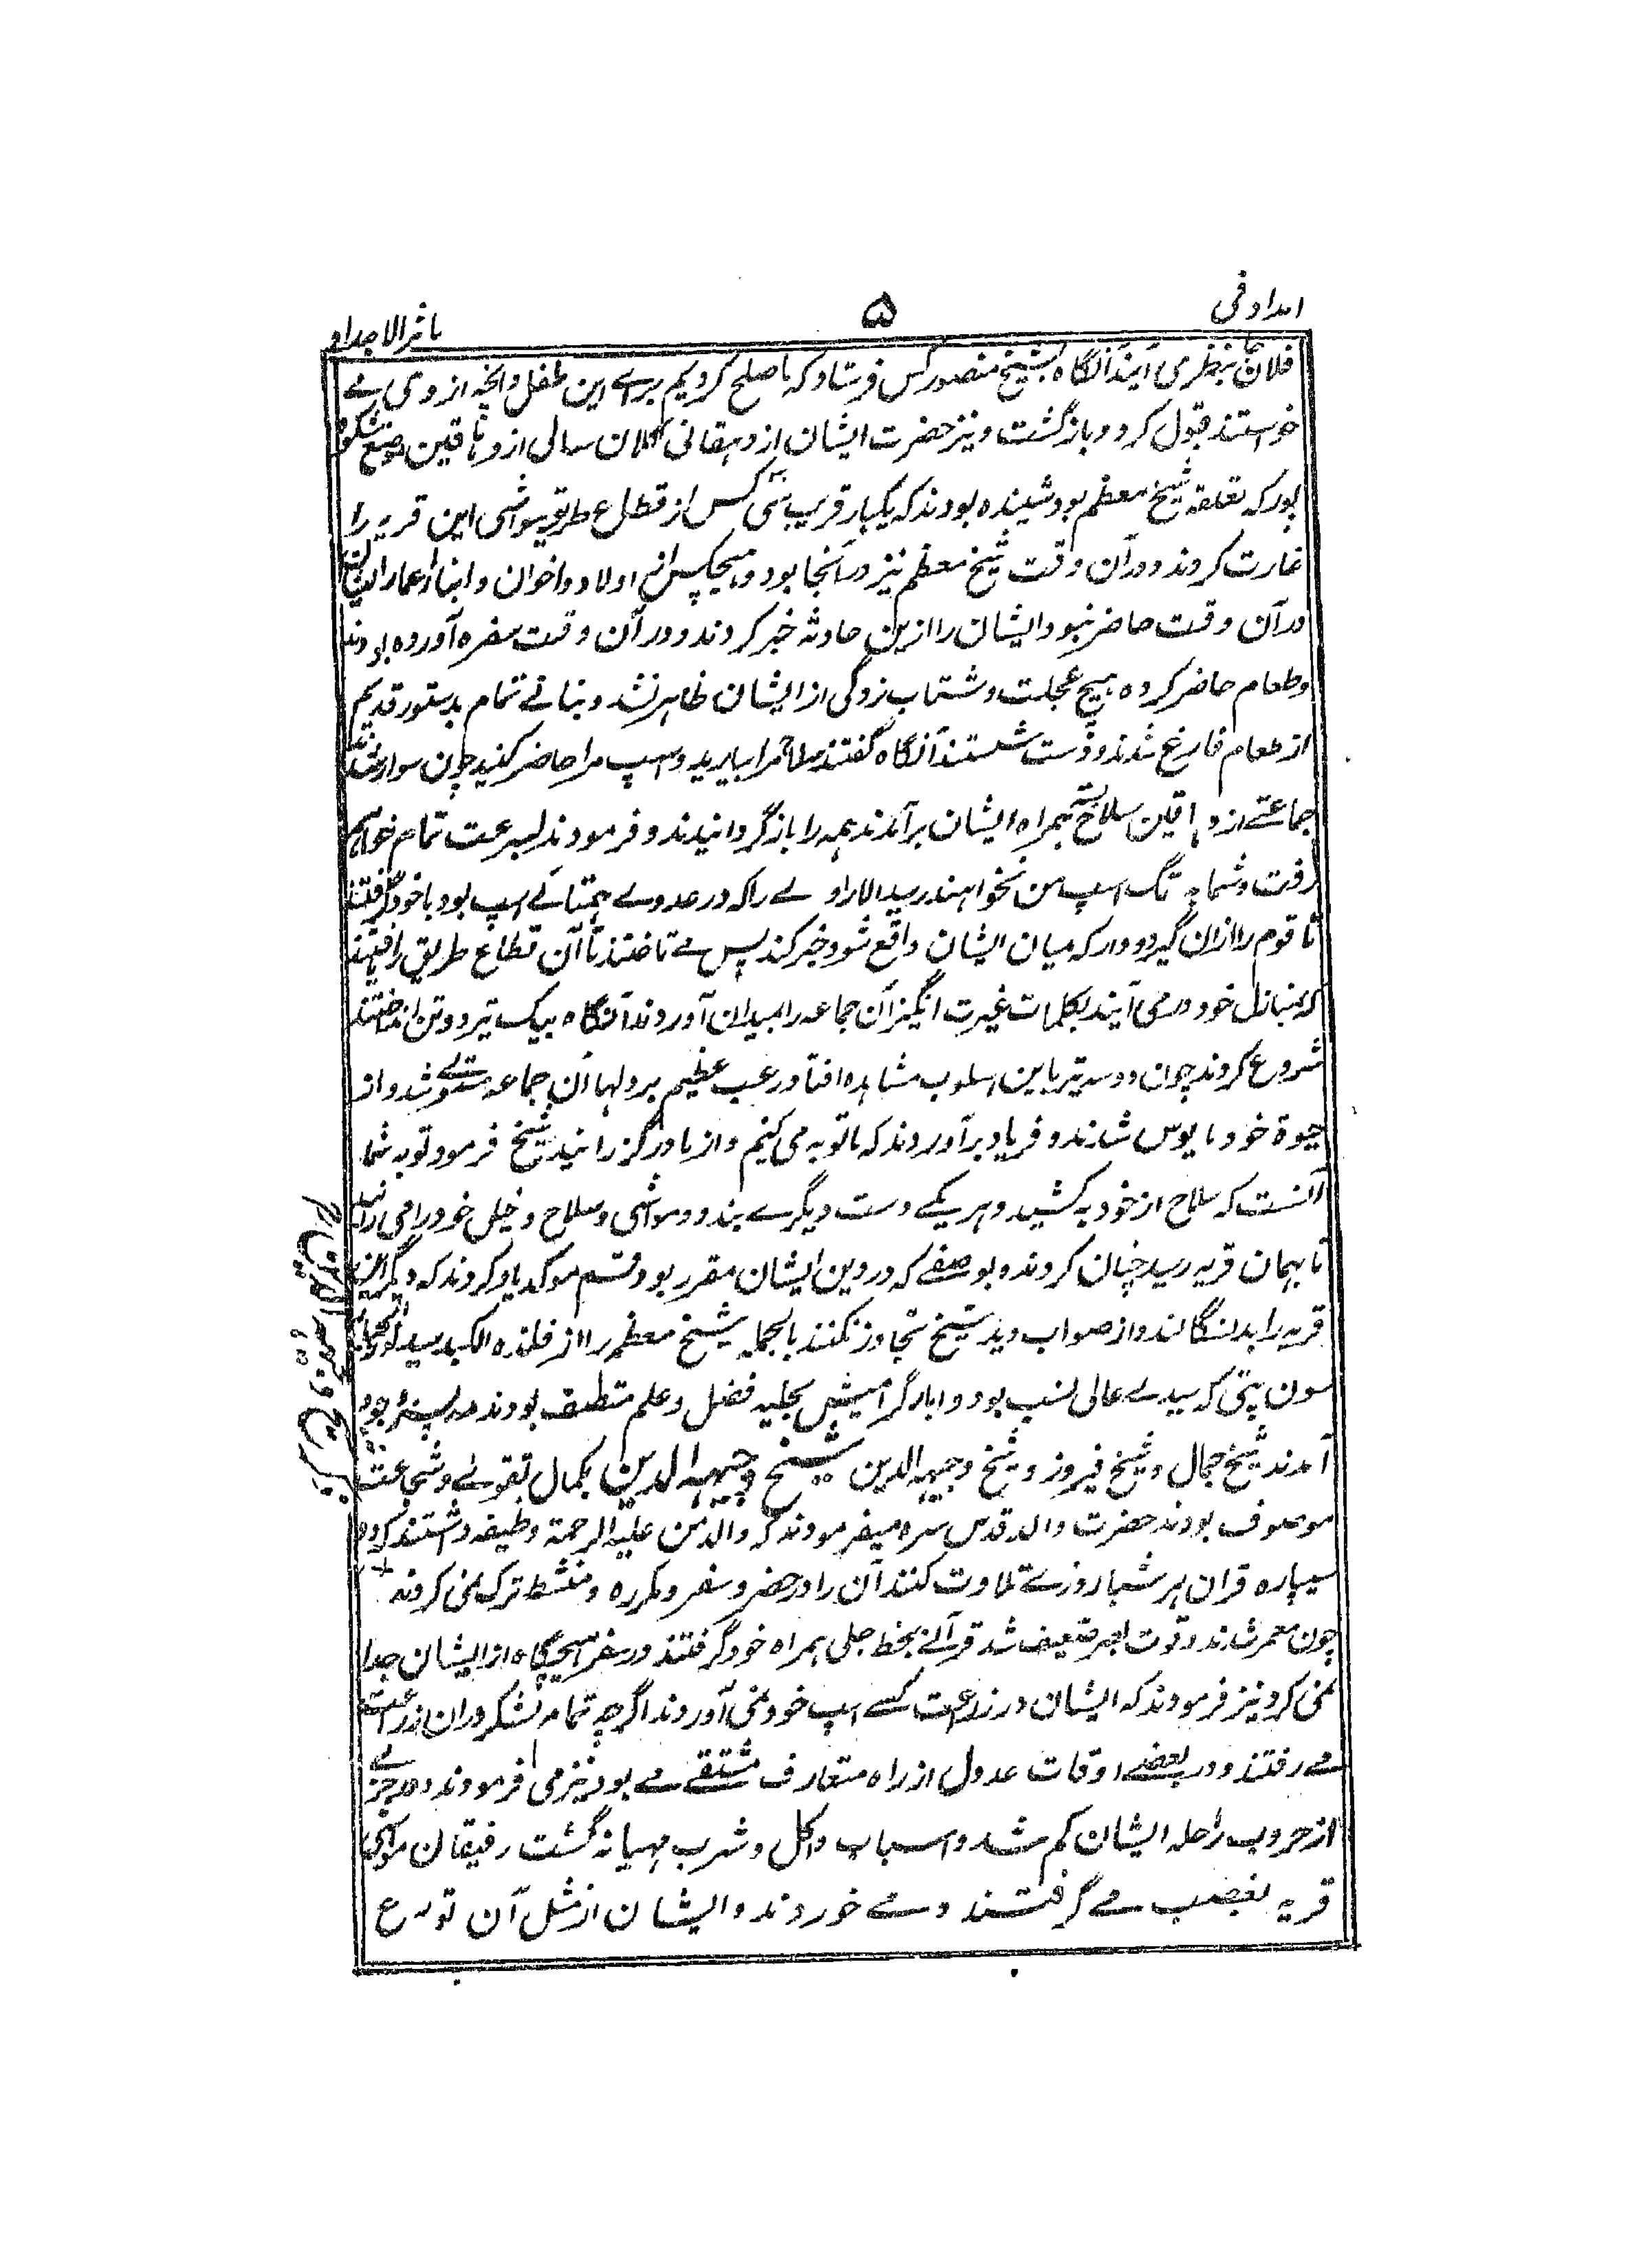 امداد فی
۵
مآثر الاجداد
فلان بنظر می آیند آنگاه بشیخ منصور کس فرستاد که ما صلح کردیم برای این طفل و آنچه از وی می
خواستند قبول کرد و بازگشت و نیز حضرت ایشان از دهقانی کلان سالی از دهاقین موضع شکوه
پور که تعلقه شیخ معظم بود شنیده بودند که یکبار قریب سی کس از قطاع طریق مواشی این قریه را
غارت کردند و در آن وقت شیخ معظم نیز در آنجا بود و هیچکس از اولاد و اخوان و ابناء اعمام ایشان
در آن وقت حاضر نبود ایشان را ازین حادثه خبر کردند و در آن وقت سفره آورده بودند
و طعام حاضر کرده هیچ عجلت و شتاب زدگی از ایشان ظاهر نشد و بتانی تمام بدستور قدیم
از طعام فارغ شدند و دست شستند آنگاه گفتند سلاح مرا بیارید و اسپ مرا حاضر کنید چون سوار شدند
جماعتے از دهاقین سلاح بسته همراه ایشان برآمدند همه را بازگردانیدند و فرمودند بسرعت تمام خواهم
رفت و شما به تگ اسپ من نخواهند رسید الا راوی را که در عدو بے همتاے اسپ بود با خود گرفتند
تا قوم را ازان گیر و دار که میان ایشان واقع شود خبر کند پس مے تاختند تا آن قطاع طریق را یافتند
که بمنازل خود در می آیند بکلمات غیرت انگیز آن جماعه را بمیدان آوردند آنگاه بیک تیر دو تن انداختند
شروع کردند چون دو سه تیر باین اسلوب مشاهده افتاد رعب عظیم بر دلهاء آن جماعه مستولی شد و از
حیوة خود مایوس شدند و فریاد برآوردند که ما توبه می کنیم و از ما درگذرانید شیخ فرمود توبه شما
آنست که سلاح از خود بکشید و هر یکے دست دیگرے بندد و مواشی و سلاح و خیل خود را می رانید
تا بهمان قریه رسید چنان کردند و بوصفے که در دین ایشان مقرر بود قسم موکد یاد کردند که دیگر این
قریه را بد نسگالند و از صواب دید شیخ تجاوز نکنند بالجمله شیخ معظم را از فلذه الکبد سید نور الجبار
سون پتی که سیدے عالی نسب بود و آباء گرامیش بحلیه فضل و علم متصف بودند سه پسر بوجود
آمدند شیخ جمال و شیخ فیروز و شیخ وجیهه الدین شیخ وجیهه الدین بکمال تقوے و شجاعت
موصوف بودند حضرت والد قدس سره میفرمودند که والد من علیه الرحمة وظیفه داشتند که دو
سیپاره قران هر شبا روزے تلاوت کنند آن را در حضر و سفر و مکره و منشط ترک نمی کردند
چون معمر شدند و قوت بصر ضعیف شد قرآنے بخط جلی همراه خود گرفتند و در سفر هیچگاه از ایشان جدا
نمی کرد و نیز فرمودند که ایشان در زراعت کسے اسپ خود نمی آوردند اگرچه تمام لشکر در آن زراعت
مے رفتند و در بعضے اوقات عدول از راه متعارف مشقتے مے بود نیز می فرمودند در بعضے
از حروب راحله ایشان کم شد و اسباب اکل و شرب مهیا نه گشت رفیقان مواشی
قریه بغصب مے گرفتند و مے خوردند و ایشان از مثل آن تورع